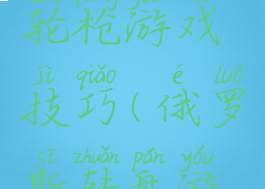 轮枪游戏
jì qiǎo é luó
技巧(俄罗
sī zhuǎn pán yóu
斯转盘游